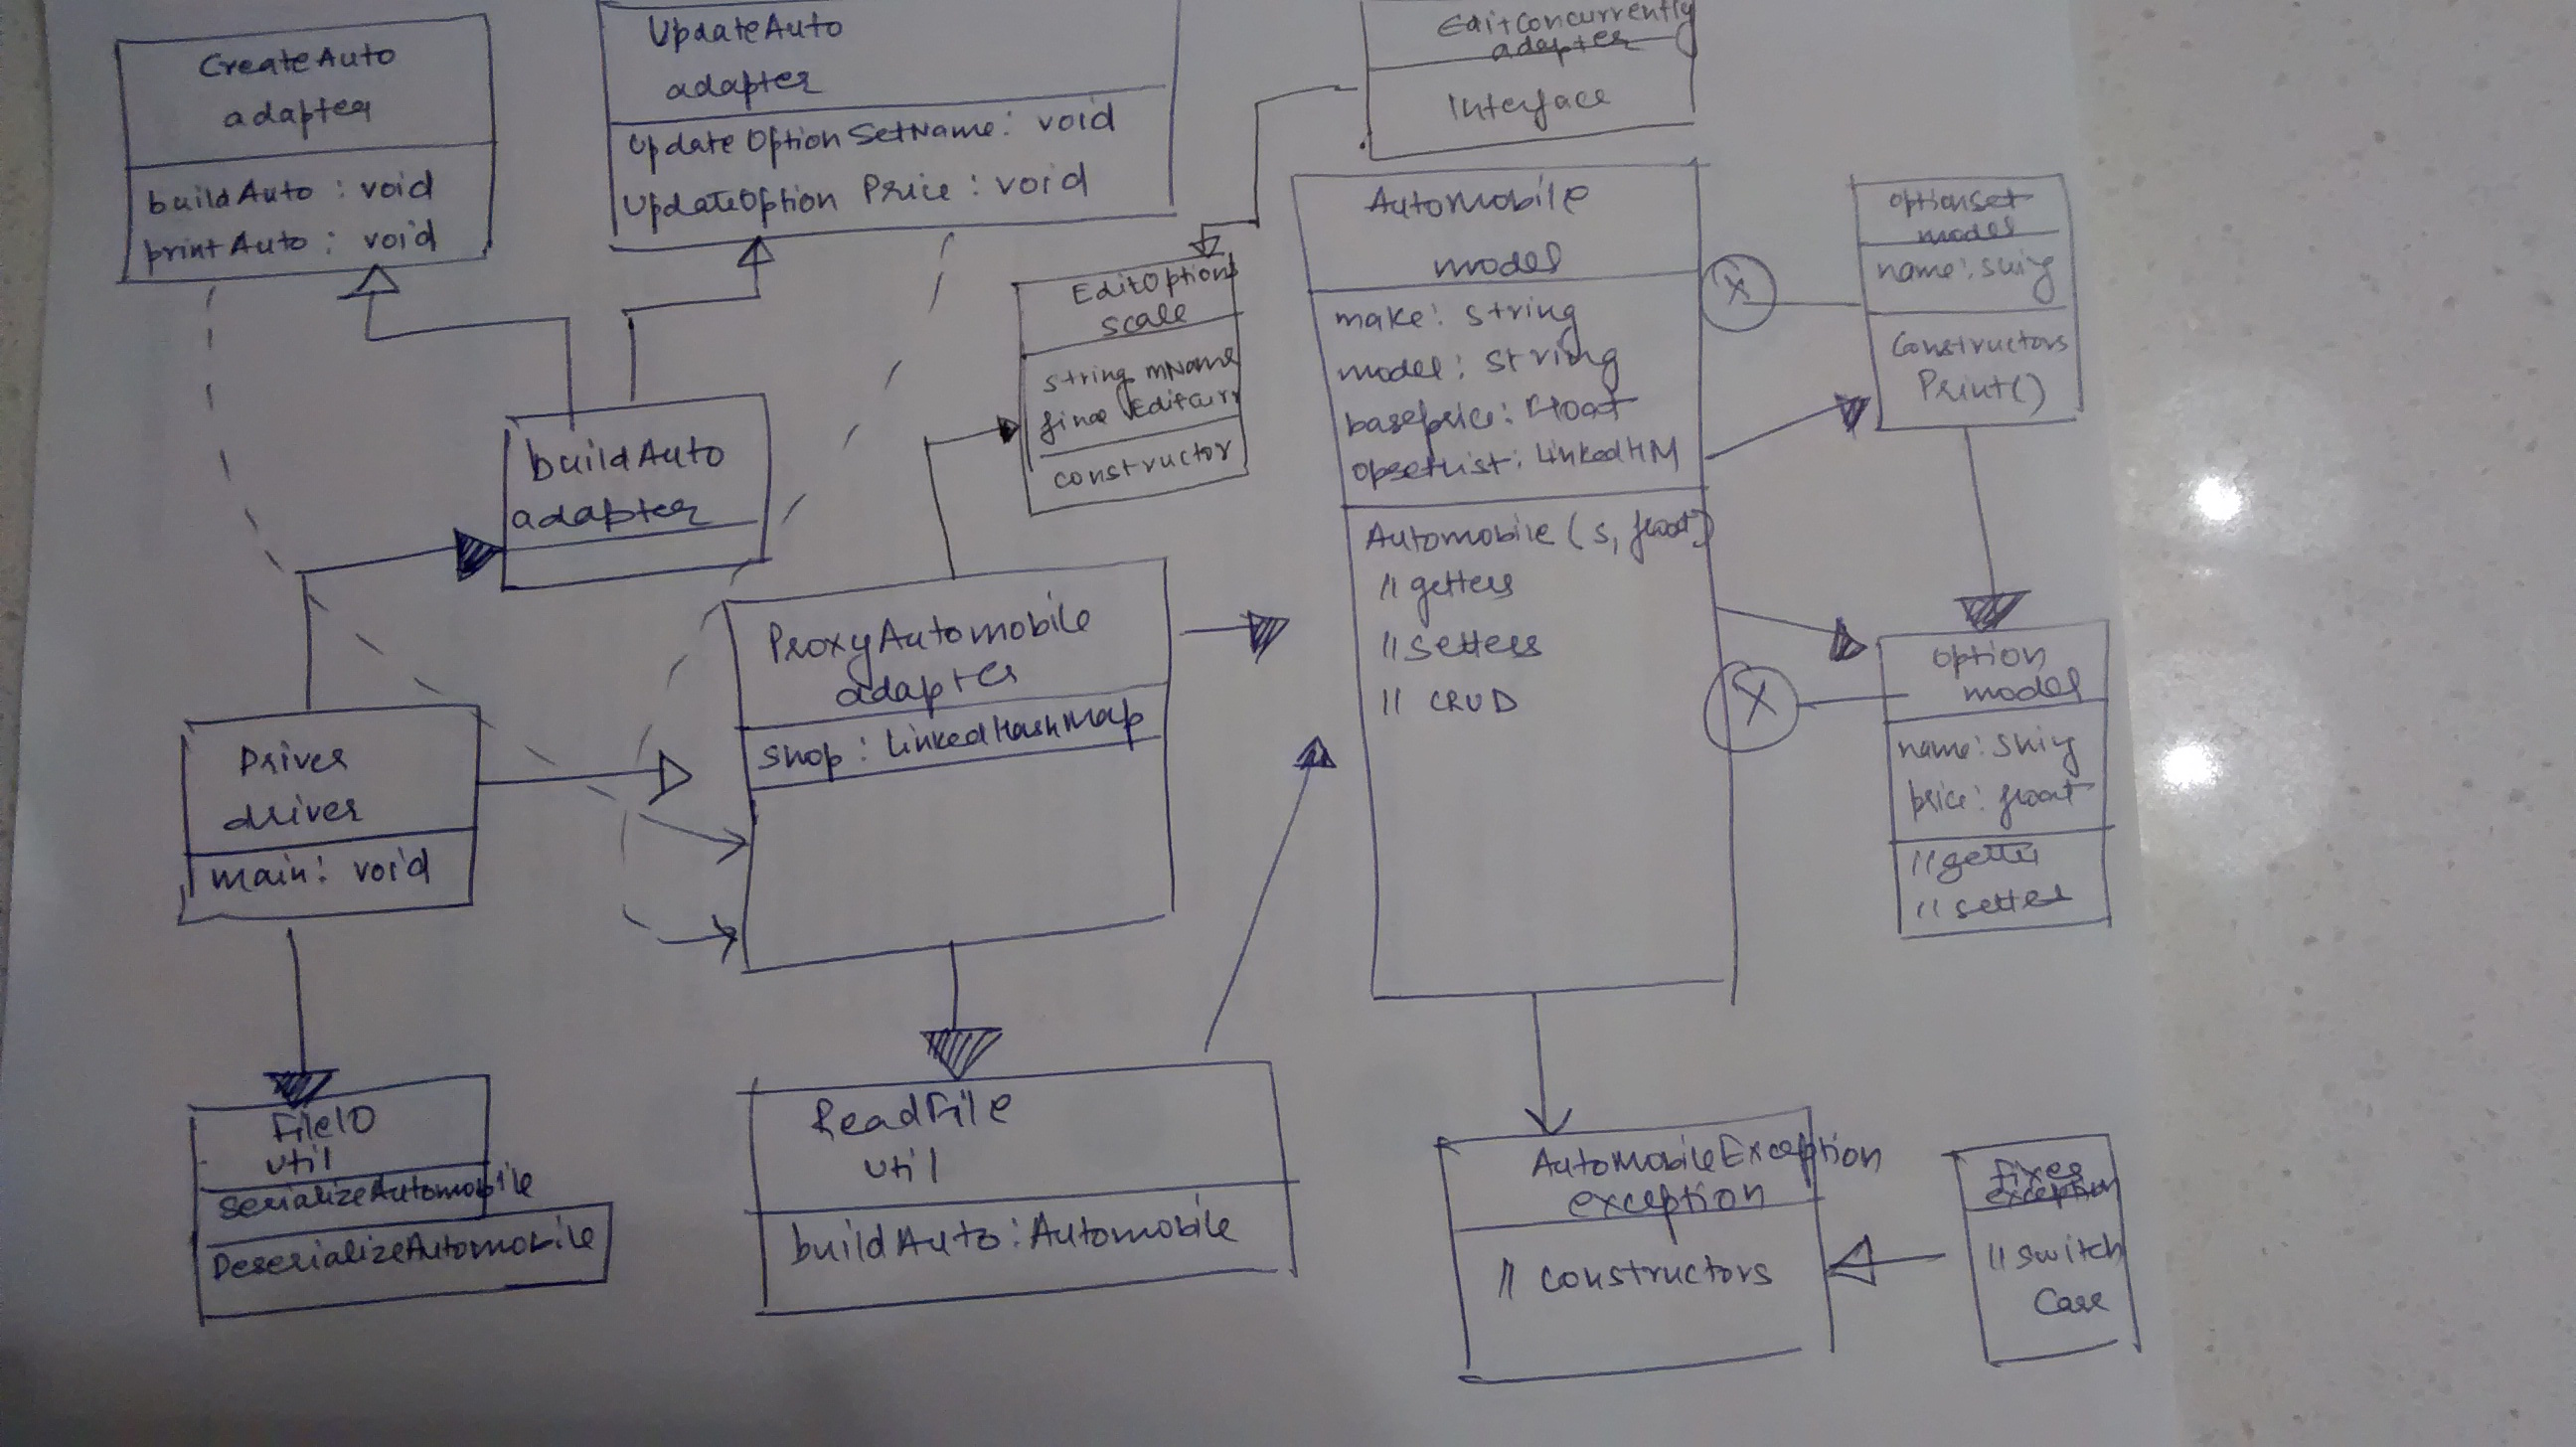 CreateAuto
adapter
buildAuto : void
printAuto : void
UpdateAuto
adapter
UpdateOptionSetName : void
UpdateOption Price : void
EditConcurrently
adapter
Interface
buildAuto
adapter
EditOptions
scale
string mName
Editcurr
constructor
Automobile
model
make: string
model: string
baseprice: float
opsetList: LinkedHM
Automobile (s, float)
// getters
// setters
// CRUD
X
optionset
model
name: string
Constructors
Print()
X
option
model
name: string
price: float
// getter
// setter
ProxyAutomobile
adapter
shop : LinkedHashMap
Driver
driver
main: void
FileIO
util
serializeAutomobile
DeserializeAutomobile
ReadFile
util
buildAuto : Automobile
AutomobileException
exception
// constructors
fixes
exception
// switch
Case